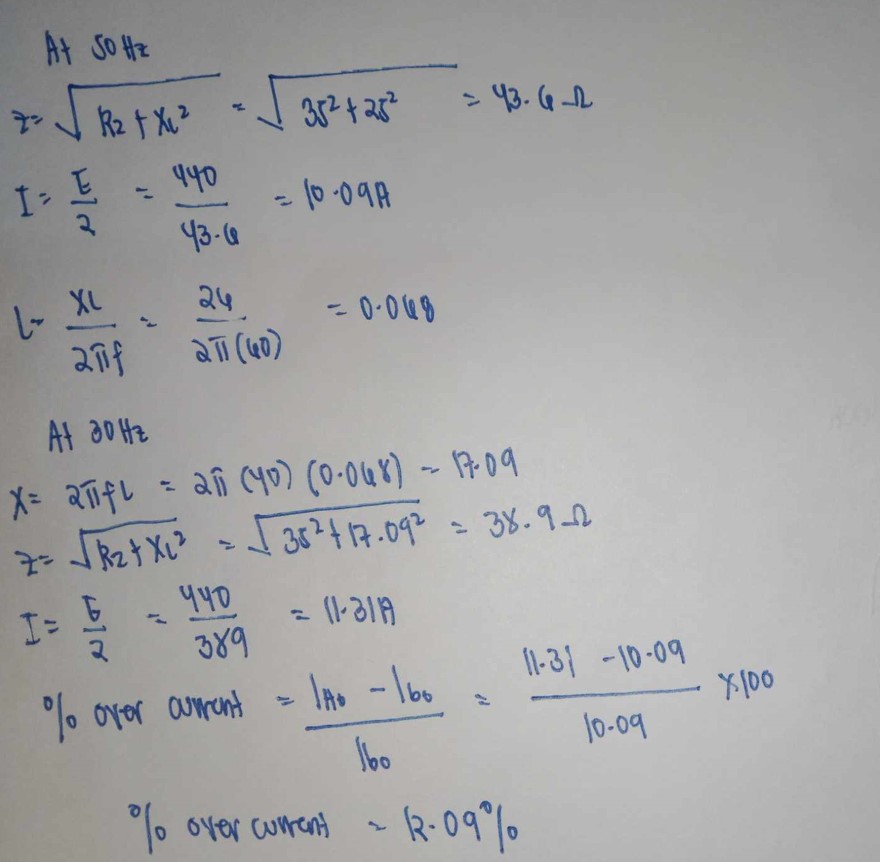 At 50 Hz
Z = √R2 + XL² = √35² + 25² = 43.6 Ω
I = E/2 = 440/43.6 = 10.09A
L = XL/2πf = 26/2π(60) = 0.068
At 30 Hz
X = 2πfL = 2π (40) (0.068) = 17.09
Z = √R2 + XL² = √35² + 17.09² = 38.9 Ω
I = E/2 = 440/389 = 11.31A
% over current = I40 - I60/I60 = 11.31 - 10.09/10.09 x100
% over current = 12.09%